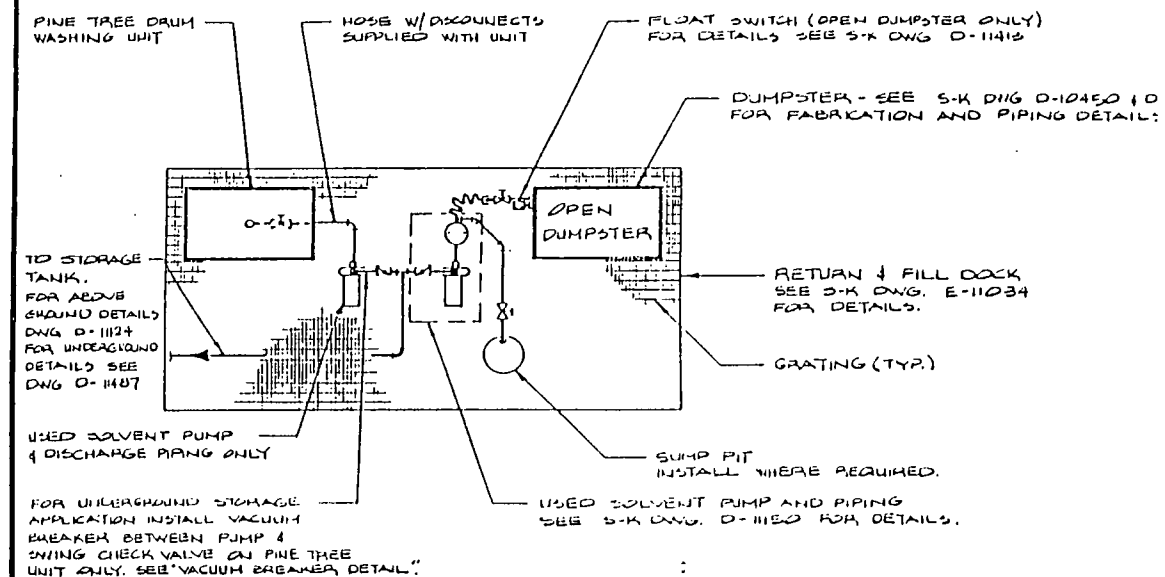 PINE TREE DRUM
WASHING UNIT
HOSE W/DISCONNECTS
SUPPLIED WITH UNIT
FLOAT SWITCH (OPEN DUMPSTER ONLY)
FOR DETAILS SEE S-K DWG
DUMPSTER - SEE S-K DWG D-10450 & D
FOR FABRICATION AND PIPING DETAILS
OPEN
DUMPSTER
TO STORAGE
TANK.
FOR ABOVE
GROUND DETAILS
DWG D-11124
FOR UNDERGROUND
DETAILS SEE
DWG D-11487
RETURN & FILL DOCK
SEE S-K DWG. E-11034
FOR DETAILS.
GRATING (TYP.)
USED SOLVENT PUMP
& DISCHARGE PIPING ONLY
SUMP PIT
INSTALL WHERE REQUIRED.
FOR UNDERGROUND STORAGE
APPLICATION INSTALL VACUUM
BREAKER BETWEEN PUMP &
SWING CHECK VALVE ON PINE TREE
UNIT ONLY. SEE "VACUUM BREAKER DETAIL".
USED SOLVENT PUMP AND PIPING
SEE S-K DWG. D-11150 FOR DETAILS.